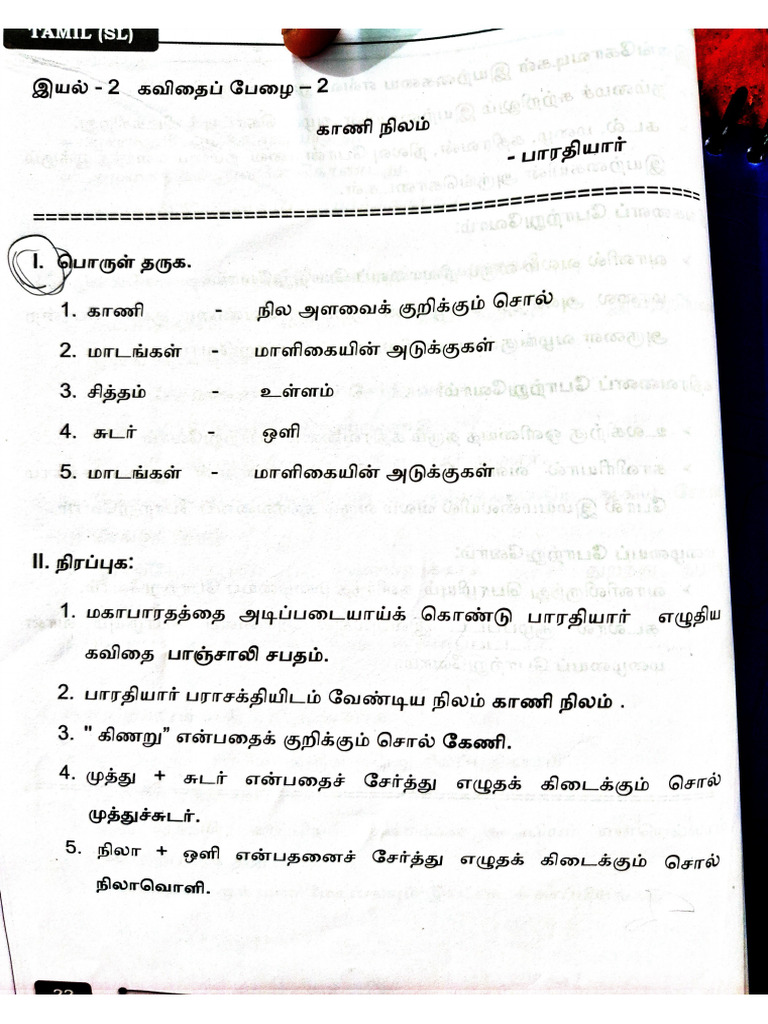 TAMIL (SL)
இயல் - 2 கவிதைப் பேழை – 2
காணி நிலம்
- பாரதியார்
I. பொருள் தருக.
1. காணி - நில அளவைக் குறிக்கும் சொல்
2. மாடங்கள் - மாளிகையின் அடுக்குகள்
3. சித்தம் - உள்ளம்
4. சுடர் - ஒளி
5. மாடங்கள் - மாளிகையின் அடுக்குகள்
II. நிரப்புக:
1. மகாபாரதத்தை அடிப்படையாய்க் கொண்டு பாரதியார் எழுதிய
கவிதை பாஞ்சாலி சபதம்.
2. பாரதியார் பராசக்தியிடம் வேண்டிய நிலம் காணி நிலம் .
3. " கிணறு” என்பதைக் குறிக்கும் சொல் கேணி.
4. முத்து + சுடர் என்பதைச் சேர்த்து எழுதக் கிடைக்கும் சொல்
முத்துச்சுடர்.
5. நிலா + ஒளி என்பதனைச் சேர்த்து எழுதக் கிடைக்கும் சொல்
நிலாவொளி.